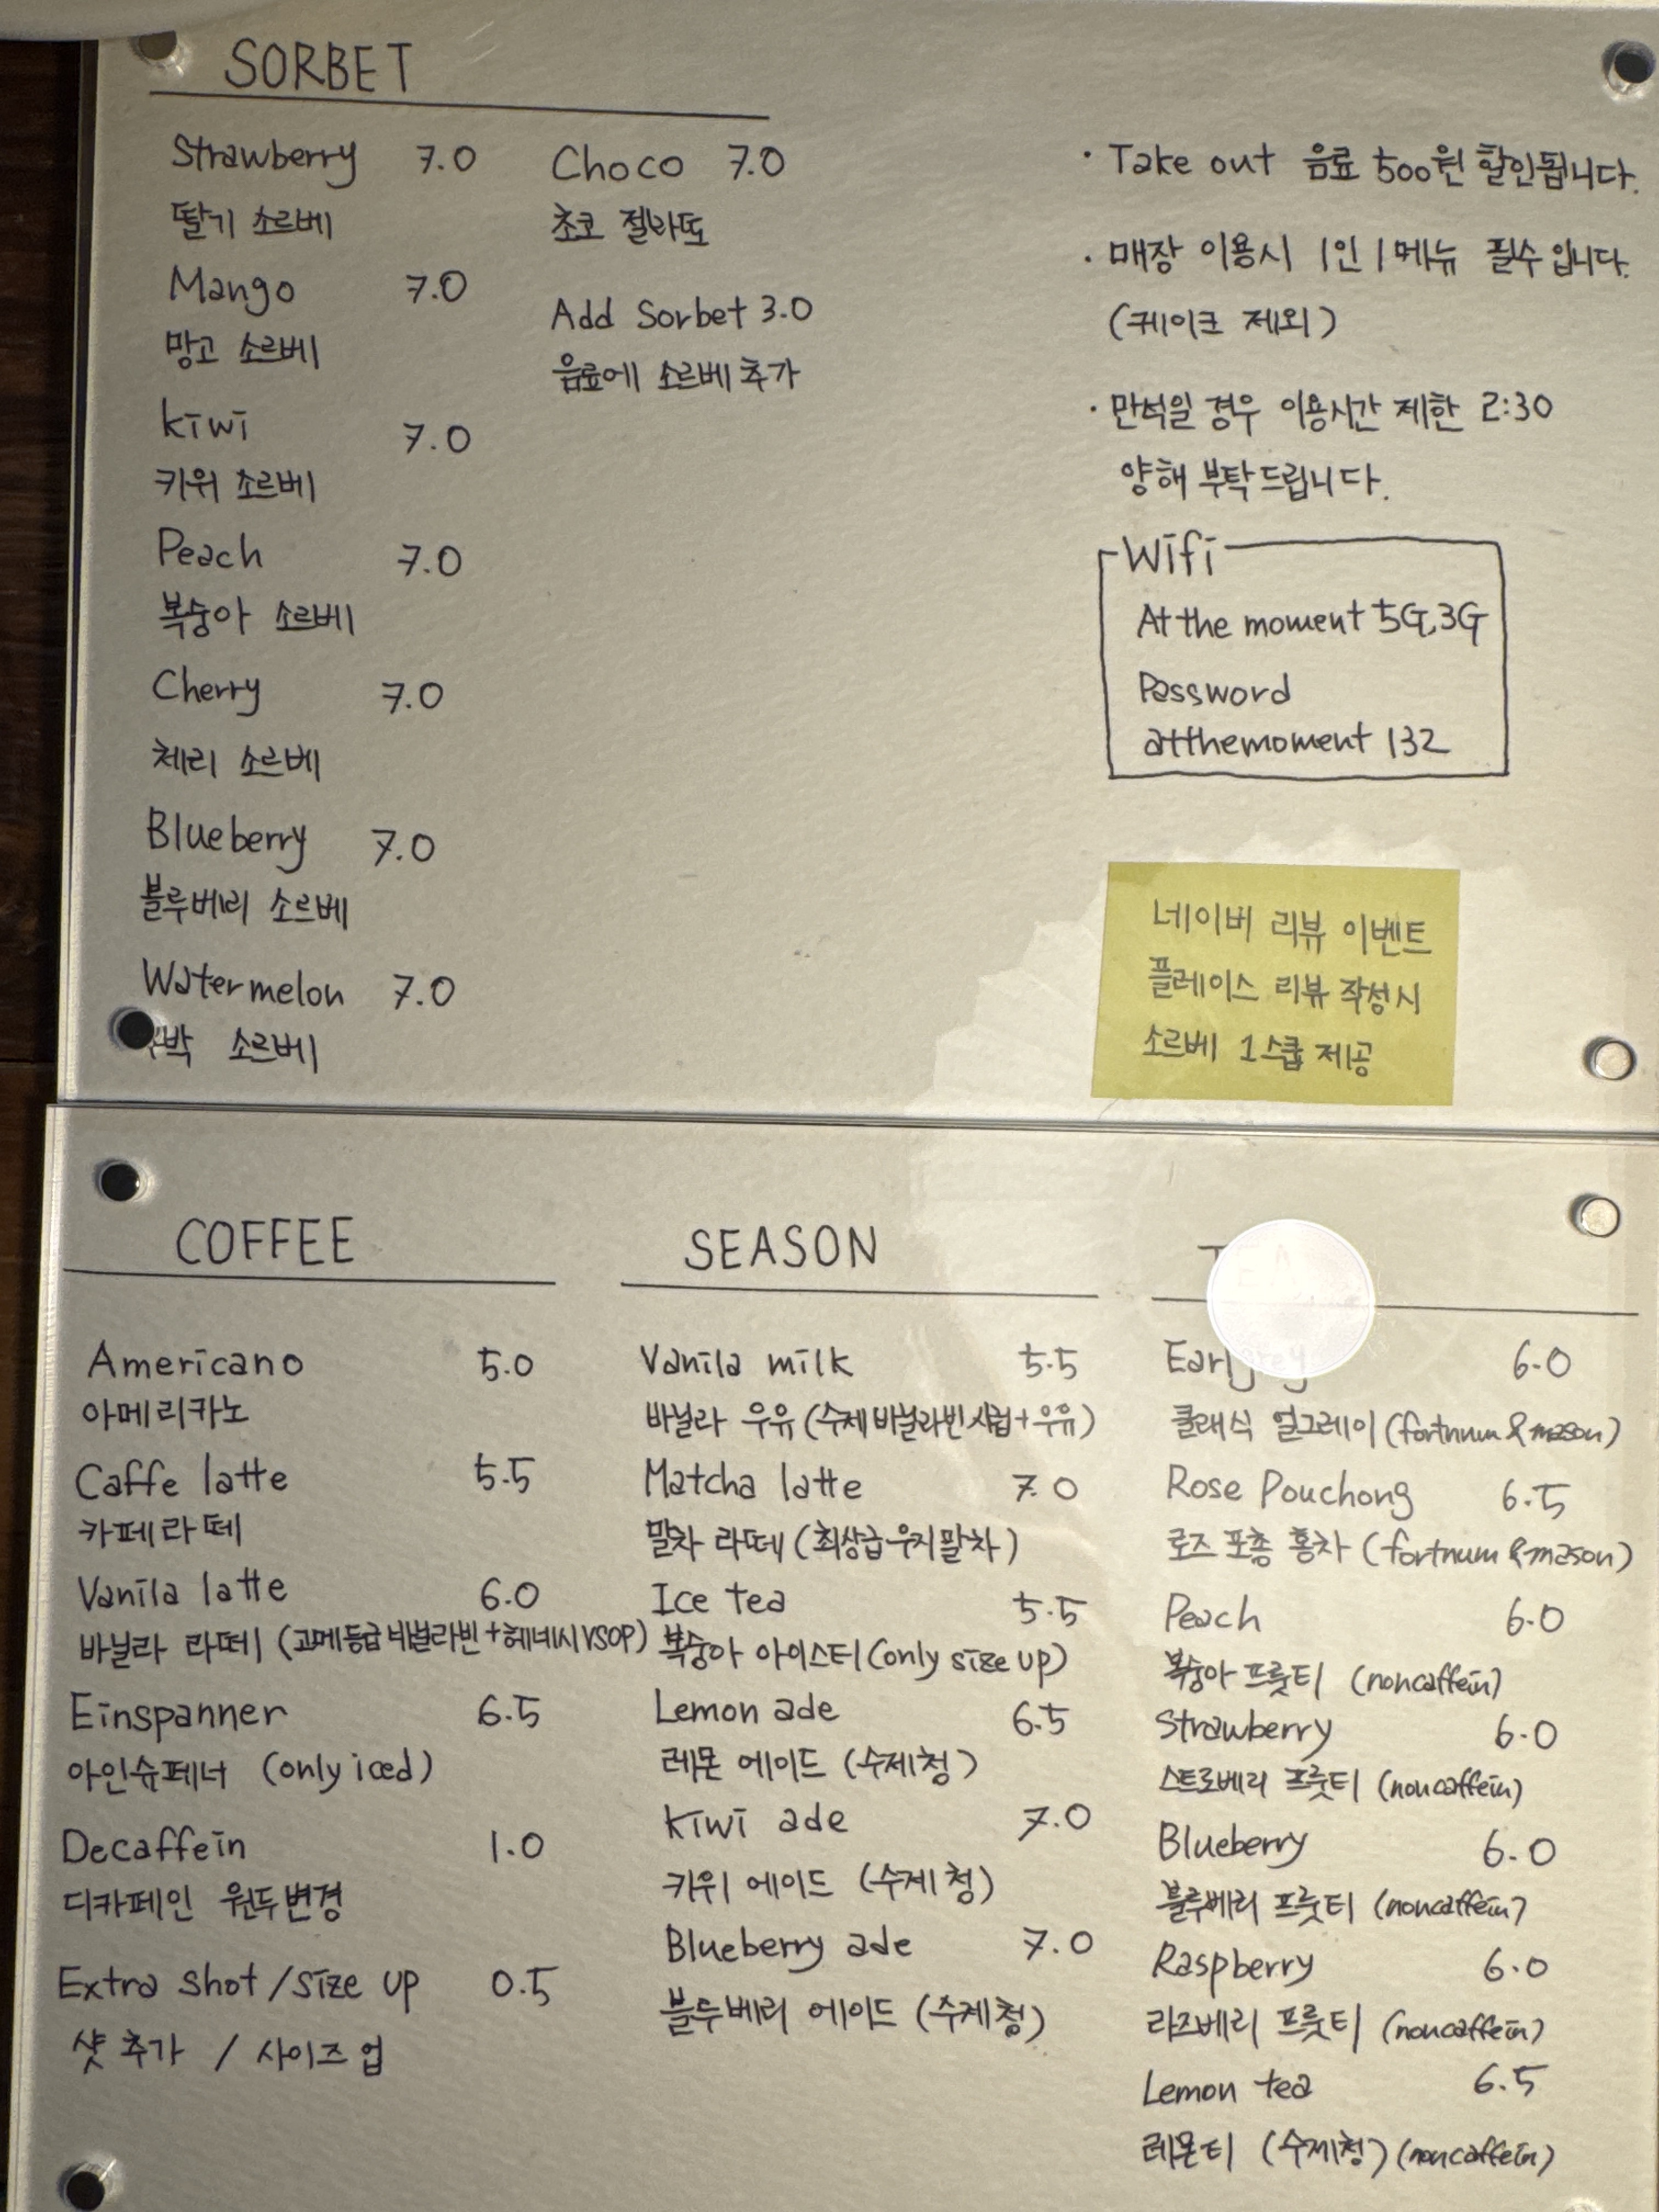 SORBET
Strawberry 7.0
딸기 소르베
Mango 7.0
망고 소르베
kiwi 7.0
키위 소르베
Peach 7.0
복숭아 소르베
Cherry 7.0
체리 소르베
Blueberry 7.0
블루베리 소르베
Watermelon 7.0
소르베
Choco 7.0
초코 젤라또
Add Sorbet 3.0
음료에 소르베 추가
· Take out 음료 500원 할인됩니다.
· 매장 이용시 1인 1메뉴 필수입니다.
(케이크 제외)
· 만석일 경우 이용시간 제한 2:30
양해 부탁드립니다.
Wifi
At the moment 5G,3G
Password
atthemoment 132
네이버 리뷰 이벤트
플레이스 리뷰 작성시
소르베 1스쿱 제공
COFFEE
Americano 5.0
아메리카노
Caffe latte 5.5
카페라떼
Vanila latte 6.0
바닐라 라떼 (고메등급 바닐라빈+헤네시VSOP)
Einspanner 6.5
아인슈페너 (only iced)
Decaffein 1.0
디카페인 원두변경
Extra shot / size up 0.5
샷 추가 / 사이즈 업
SEASON
Vanila milk 5.5
바닐라 우유 (수제 바닐라빈시럽+우유)
Matcha latte 7.0
말차 라떼 (최상급 우지말차)
Ice tea 5.5
복숭아 아이스티 (only size up)
Lemon ade 6.5
레몬 에이드 (수제청)
Kiwi ade 7.0
키위 에이드 (수제청)
Blueberry ade 7.0
블루베리 에이드 (수제청)
TEA
Earlgrey 6.0
클래식 얼그레이 (fortnum & mason)
Rose Pouchong 6.5
로즈 포총 홍차 (fortnum & mason)
Peach 6.0
복숭아 프룻티 (noncaffein)
Strawberry 6.0
스트로베리 프룻티 (noncaffein)
Blueberry 6.0
블루베리 프룻티 (noncaffein)
Raspberry 6.0
라즈베리 프룻티 (noncaffein)
Lemon tea 6.5
레몬티 (수제청) (noncaffein)